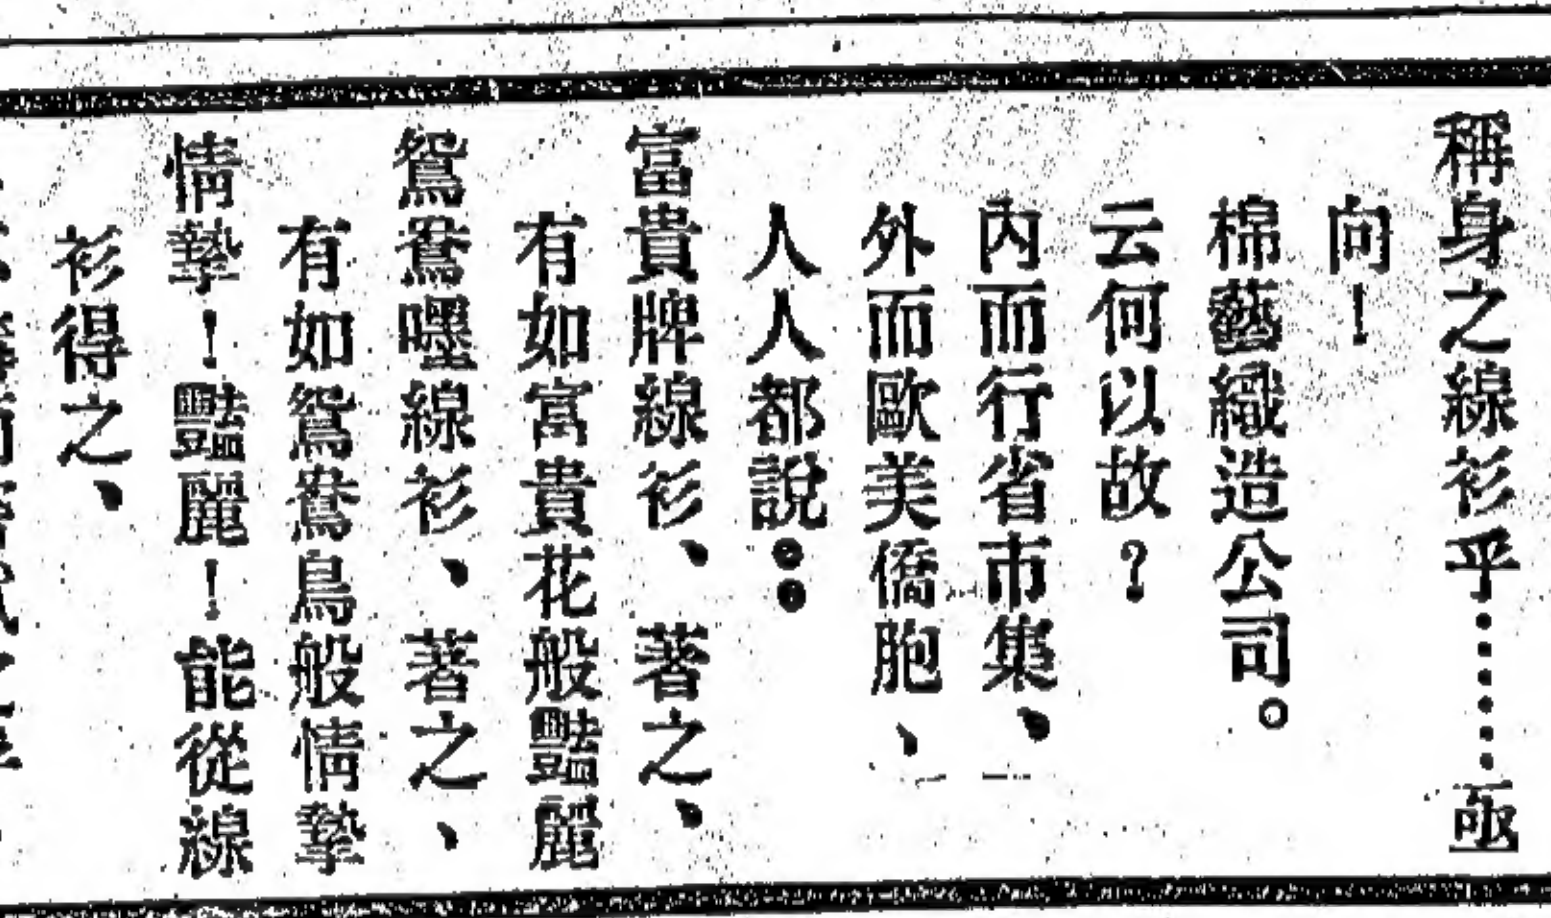 稱身之線衫乎⋯⋯亟
向！
棉藝織造公司。
云何以故？
內而行省市集、
外而歐美僑胞、
人人都說：
富貴牌線衫、著之、
有如富貴花般豔麗
鴛鴦嘜線衫、著之、
有如鴛鴦鳥般情摯
情摯！豔麗！能從線
衫得之、